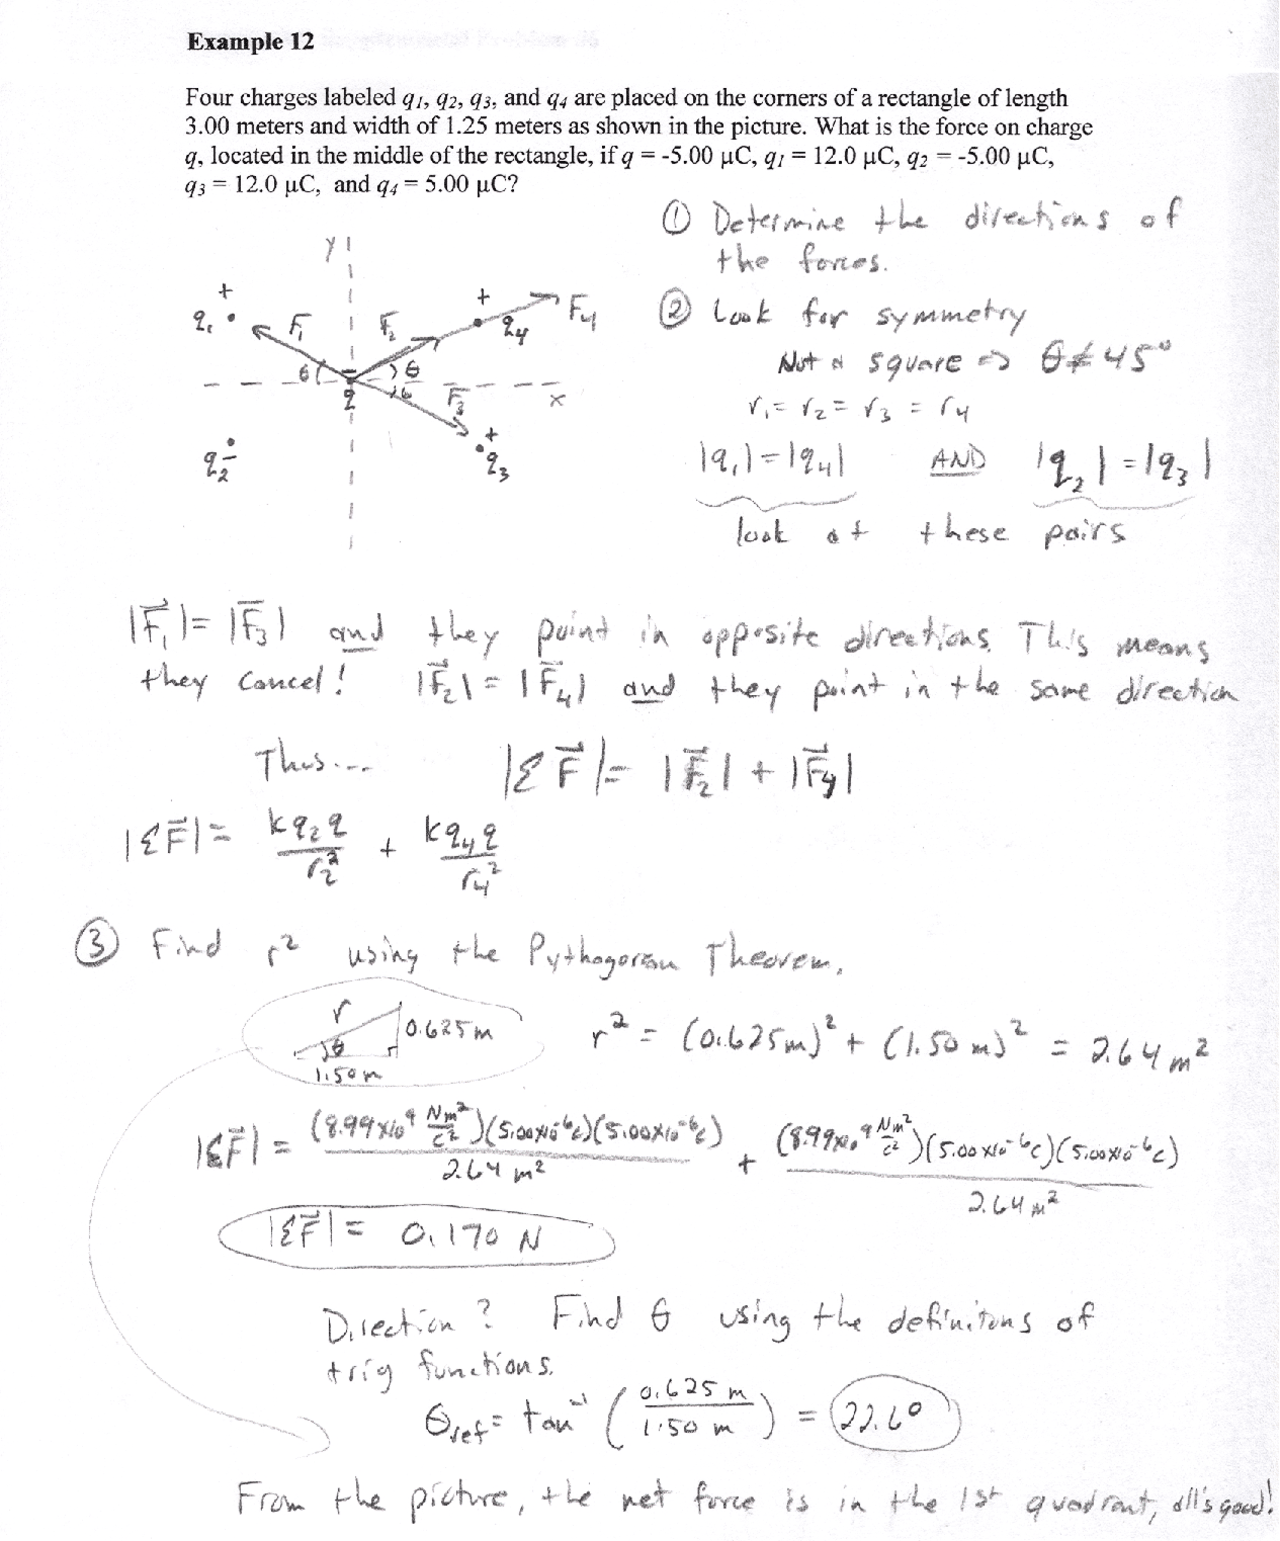 Example 12
Four charges labeled q1, q2, q3, and q4 are placed on the corners of a rectangle of length
3.00 meters and width of 1.25 meters as shown in the picture. What is the force on charge
q, located in the middle of the rectangle, if q = -5.00 μC, q1 = 12.0 μC, q2 = -5.00 μC,
q3 = 12.0 μC, and q4 = 5.00 μC?
① Determine the directions of
the forces.
② Look for symmetry
Not a square => θ ≠ 45°
r₁ = r₂ = r₃ = r₄
|q₁| = |q₄| AND |q₂| = |q₃|
look at these pairs
y
+
q₁
F₁
F₂
+
q₄
F₄
θ
θ
θ
-
q
F₃
x
q₂ -
+
q₃
|F⃗₁| = |F⃗₃| and they point in opposite directions. This means
they cancel! |F⃗₂| = |F⃗₄| and they point in the same direction
Thus... |ΣF⃗| = |F⃗₂| + |F⃗₄|
|ΣF⃗| = kq₂q/r₂² + kq₄q/r₄²
③ Find r² using the Pythagorean Theorem.
r
0.625 m
θ
1.50 m
r² = (0.625m)² + (1.50 m)² = 2.64 m²
|ΣF⃗| = (8.99x10⁹ Nm²/C²)(5.00x10⁻⁶C)(5.00x10⁻⁶C)/2.64 m² + (8.99x10⁹ Nm²/C²)(5.00x10⁻⁶C)(5.00x10⁻⁶C)/2.64 m²
|ΣF⃗| = 0.170 N
Direction? Find θ using the definitons of
trig functions.
θref = tan⁻¹ (0.625 m/1.50 m) = 22.6°
From the picture, the net force is in the 1st quadrant, all's good!